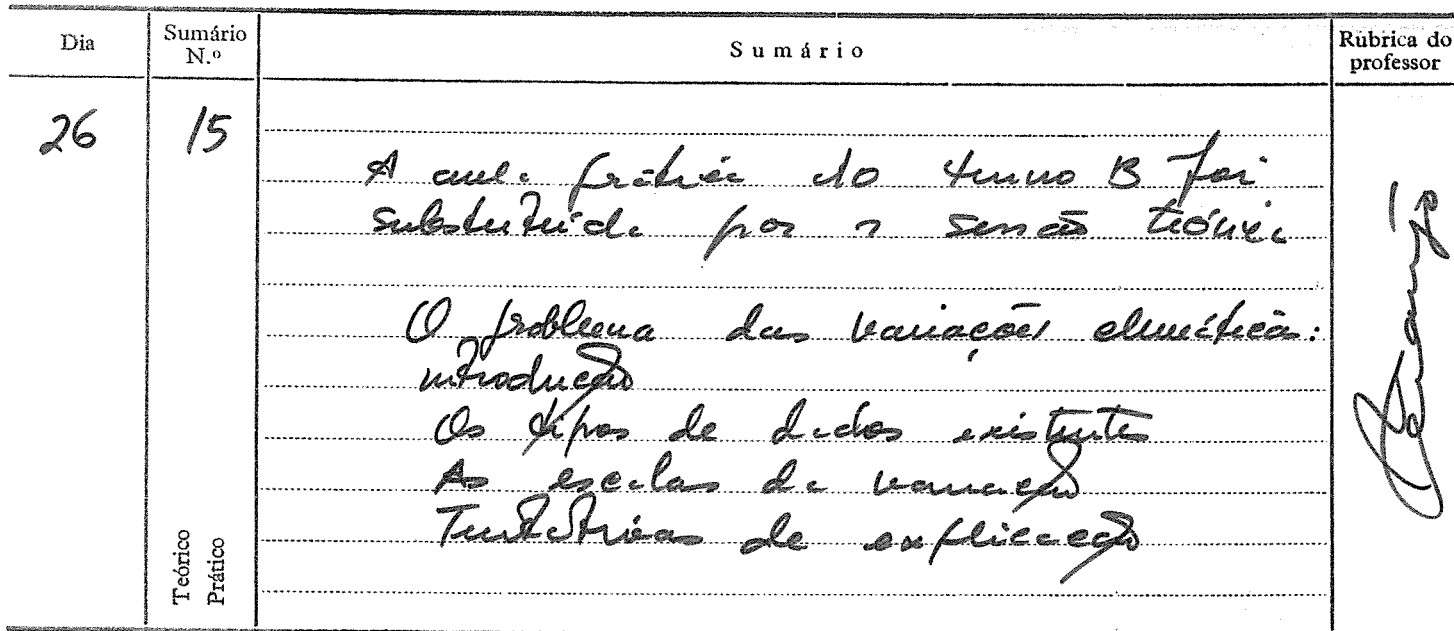 Dia
Sumário N.º
Sumário
Rúbrica do professor
26
15
A aula prática do turno B foi
substituída por sessão teórica
O problema das variações climáticas:
introdução
Os tipos de dados existentes
As escalas da variação
Tentativas de explicação
Teórico
Prático